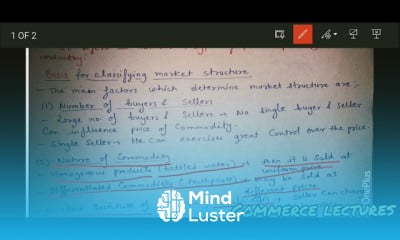 1 OF 2
industry.
Basis for classifying market structure
- The main factors which determine market structure are :-
(1) Number of buyers & Sellers
- Large no. of buyers & Sellers → No single buyer & Seller
Can influence price of Commodity.
- Single Seller → He can exercises great Control over the price.
(2) Nature of Commodity
- Homogenous products (bottled water) → then it is Sold at
uniform price
- Differentiated Commodities (toothpaste) → may be Sold at
different prices
Seller Can charge
OnePlus
COMMERCE LECTURES
Mind
Luster